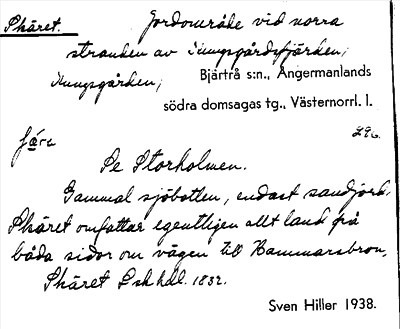 Skäret. Jordområde vid norra
stranden av Kungsgårdsfjärden,
Kungsgården, Bjärtrå s:n., Ångermanlands
södra domsagas tg., Västernorrl. l.
Se Storholmen.
Gammal sjöbotten, endast sandjord.
Skäret omfattar egentligen allt land på
båda sidor om vägen till Hammarsbron.
Skäret Lskhdl. 1832.
Sven Hiller 1938.